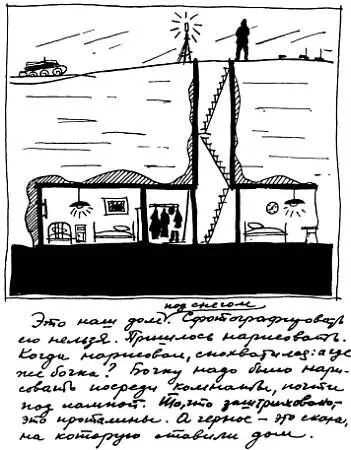 под снегом
Это наш дом. Сфотографировать
его нельзя. Пришлось нарисовать.
Когда нарисовал, спохватился: а где
же бочка? Бочку надо было нари-
совать посреди комнаты, почти
под лампой. То, что заштриховано,-
это проталины. А черное - это скала,
на которую ставили дом.